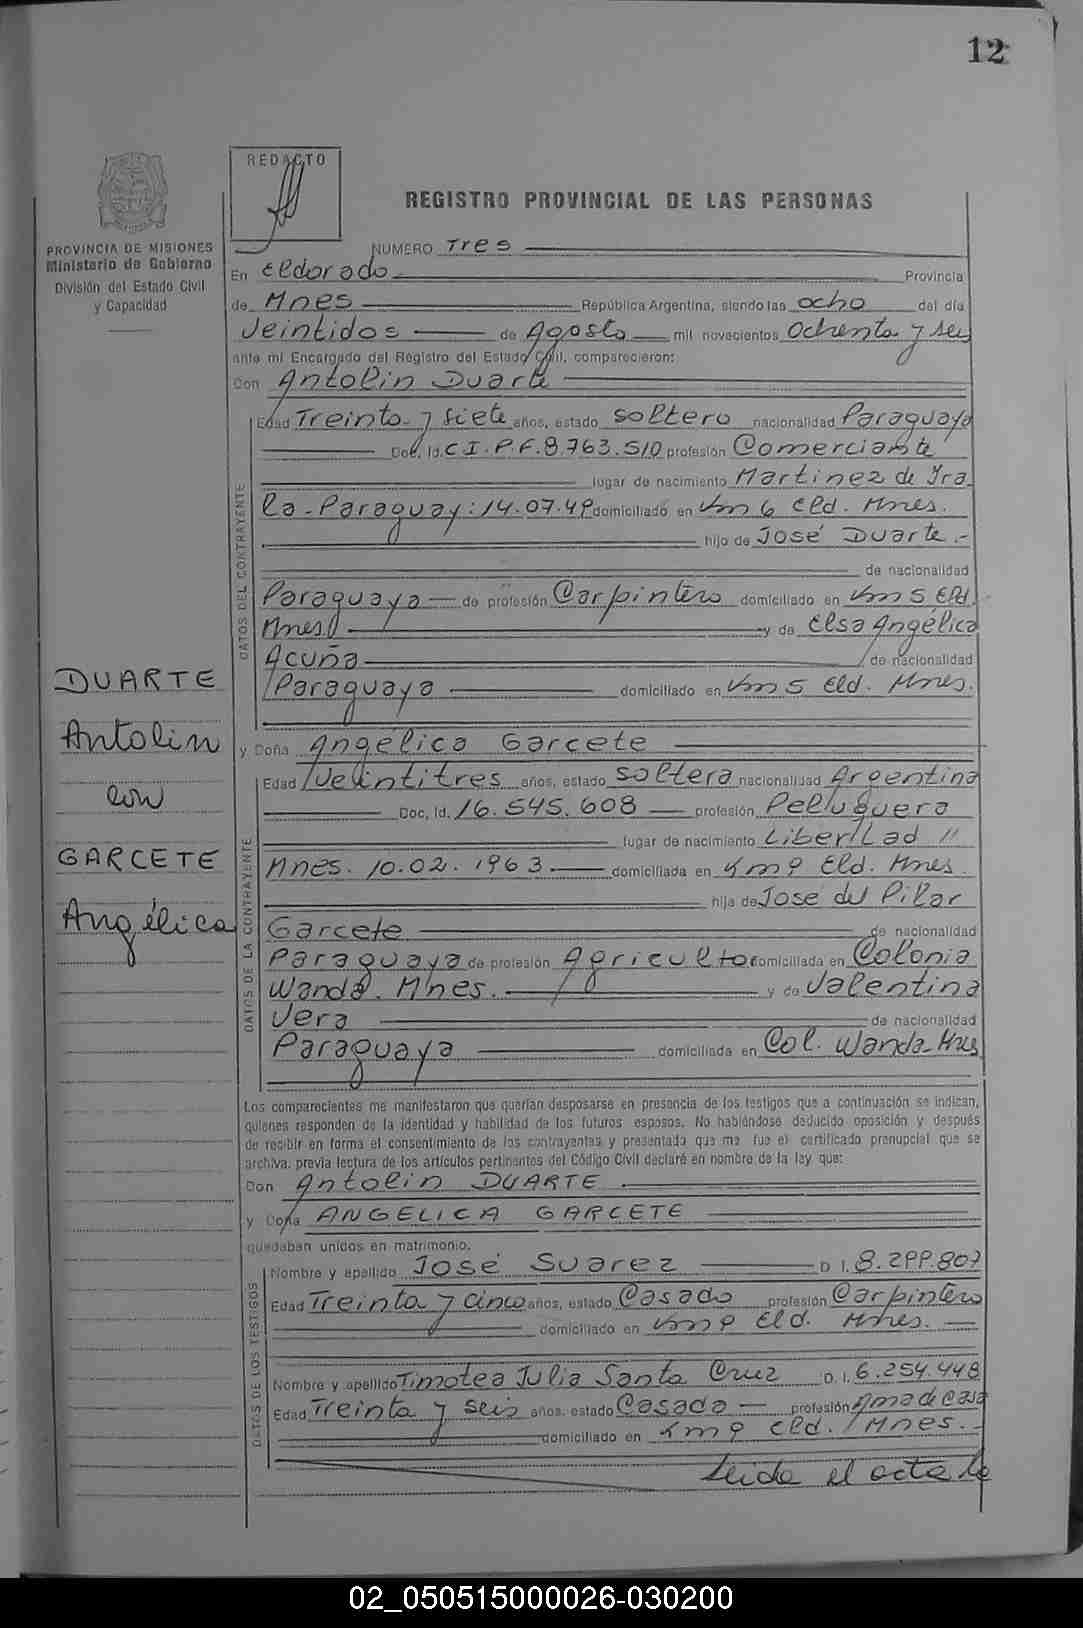 12
REDACTO
REGISTRO PROVINCIAL DE LAS PERSONAS
PROVINCIA DE MISIONES
Ministerio de Gobierno
División del Estado Civil
y Capacidad
NUMERO Tres
En Eldorado Provincia
de Mnes República Argentina, siendo las ocho del día
Veintidos de Agosto mil novecientos Ochenta y seis
ante mi Encargado del Registro del Estado Civil, comparecieron:
Don Antolin Duarte
DATOS DEL CONTRAYENTE
Edad Treinta y siete años, estado soltero nacionalidad Paraguaya
Doc. Id. C.I.P.F. 8.763.510 profesión Comerciante
lugar de nacimiento Martinez de Ira
la - Paraguay: 14.07.49 domiciliado en Km 6 Eld. Mnes.
hijo de José Duarte.-
de nacionalidad
Paraguaya de profesión Carpintero domiciliado en Km 5 Eld.
Mnes y de Elsa Angélica
Acuña de nacionalidad
Paraguaya domiciliado en Km 5 Eld. Mnes.
DUARTE
Antolin
con
GARCETE
Angélica
y Doña Angélica Garcete
DATOS DE LA CONTRAYENTE
Edad Veintitres años, estado soltera nacionalidad Argentina
Doc. Id. 16.545.608 profesión Peluquera
lugar de nacimiento Libertad
Mnes. 10.02.1963 domiciliada en Km 9 Eld. Mnes.
hija de José del Pilar
Garcete de nacionalidad
Paraguaya de profesión Agricultor domiciliada en Colonia
Wanda. Mnes. y de Valentina
Vera de nacionalidad
Paraguaya domiciliada en Col. Wanda-Mnes
Los comparecientes me manifestaron que querían desposarse en presencia de los testigos que a continuación se indican,
quienes responden de la identidad y habilidad de los futuros esposos. No habiéndose deducido oposición y después
de recibir en forma el consentimiento de los contrayentes y presentado que me fue el certificado prenupcial que se
archiva, previa lectura de los artículos pertinentes del Código Civil declaré en nombre de la ley que:
Don Antolin DUARTE
y Doña ANGELICA GARCETE
quedaban unidos en matrimonio.
DATOS DE LOS TESTIGOS
Nombre y apellido José Suarez D.I. 8.299.807
Edad Treinta y cinco años, estado Casado profesión Carpintero
domiciliado en Km 9 Eld. Mnes.
Nombre y apellido Timotea Julia Santa Cruz D.I. 6.254.448
Edad Treinta y seis años, estado Casada profesión Ama de casa
domiciliado en Km 9 Eld. Mnes.
Leida el acta la
02_050515000026-030200